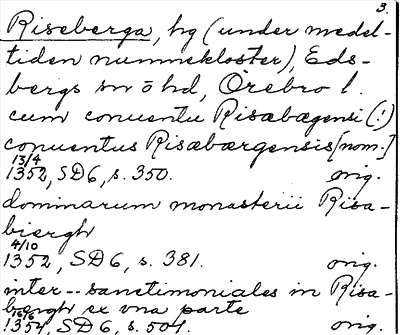 3.
Riseberga, hg (under medel-
tiden nunnekloster), Eds-
bergs sn ö hd, Örebro l.
cum conuentu Risabægensi (!)
conuentus Risabærgensis [nom.]
13/4
1352, SD 6, s. 350. orig.
dominarum monasterii Risa-
biergh
4/10
1352, SD 6, s. 381. orig.
inter -- sanctimoniales in Risa-
bergh ex vna parte
1354, SD 6, s. 501. orig.